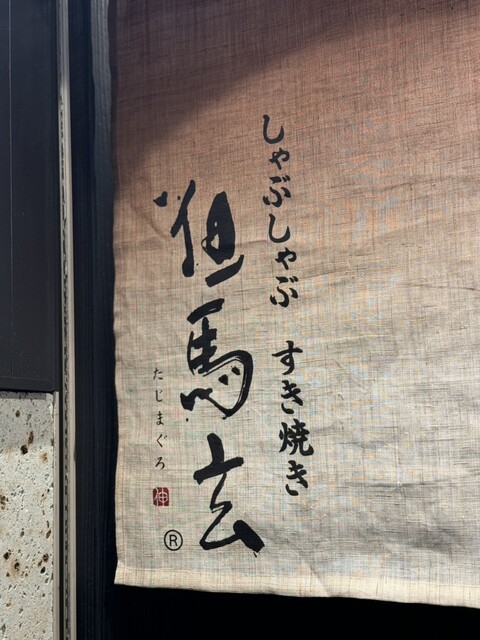 しゃぶしゃぶ すき焼き
但馬玄
たじまぐろ
®